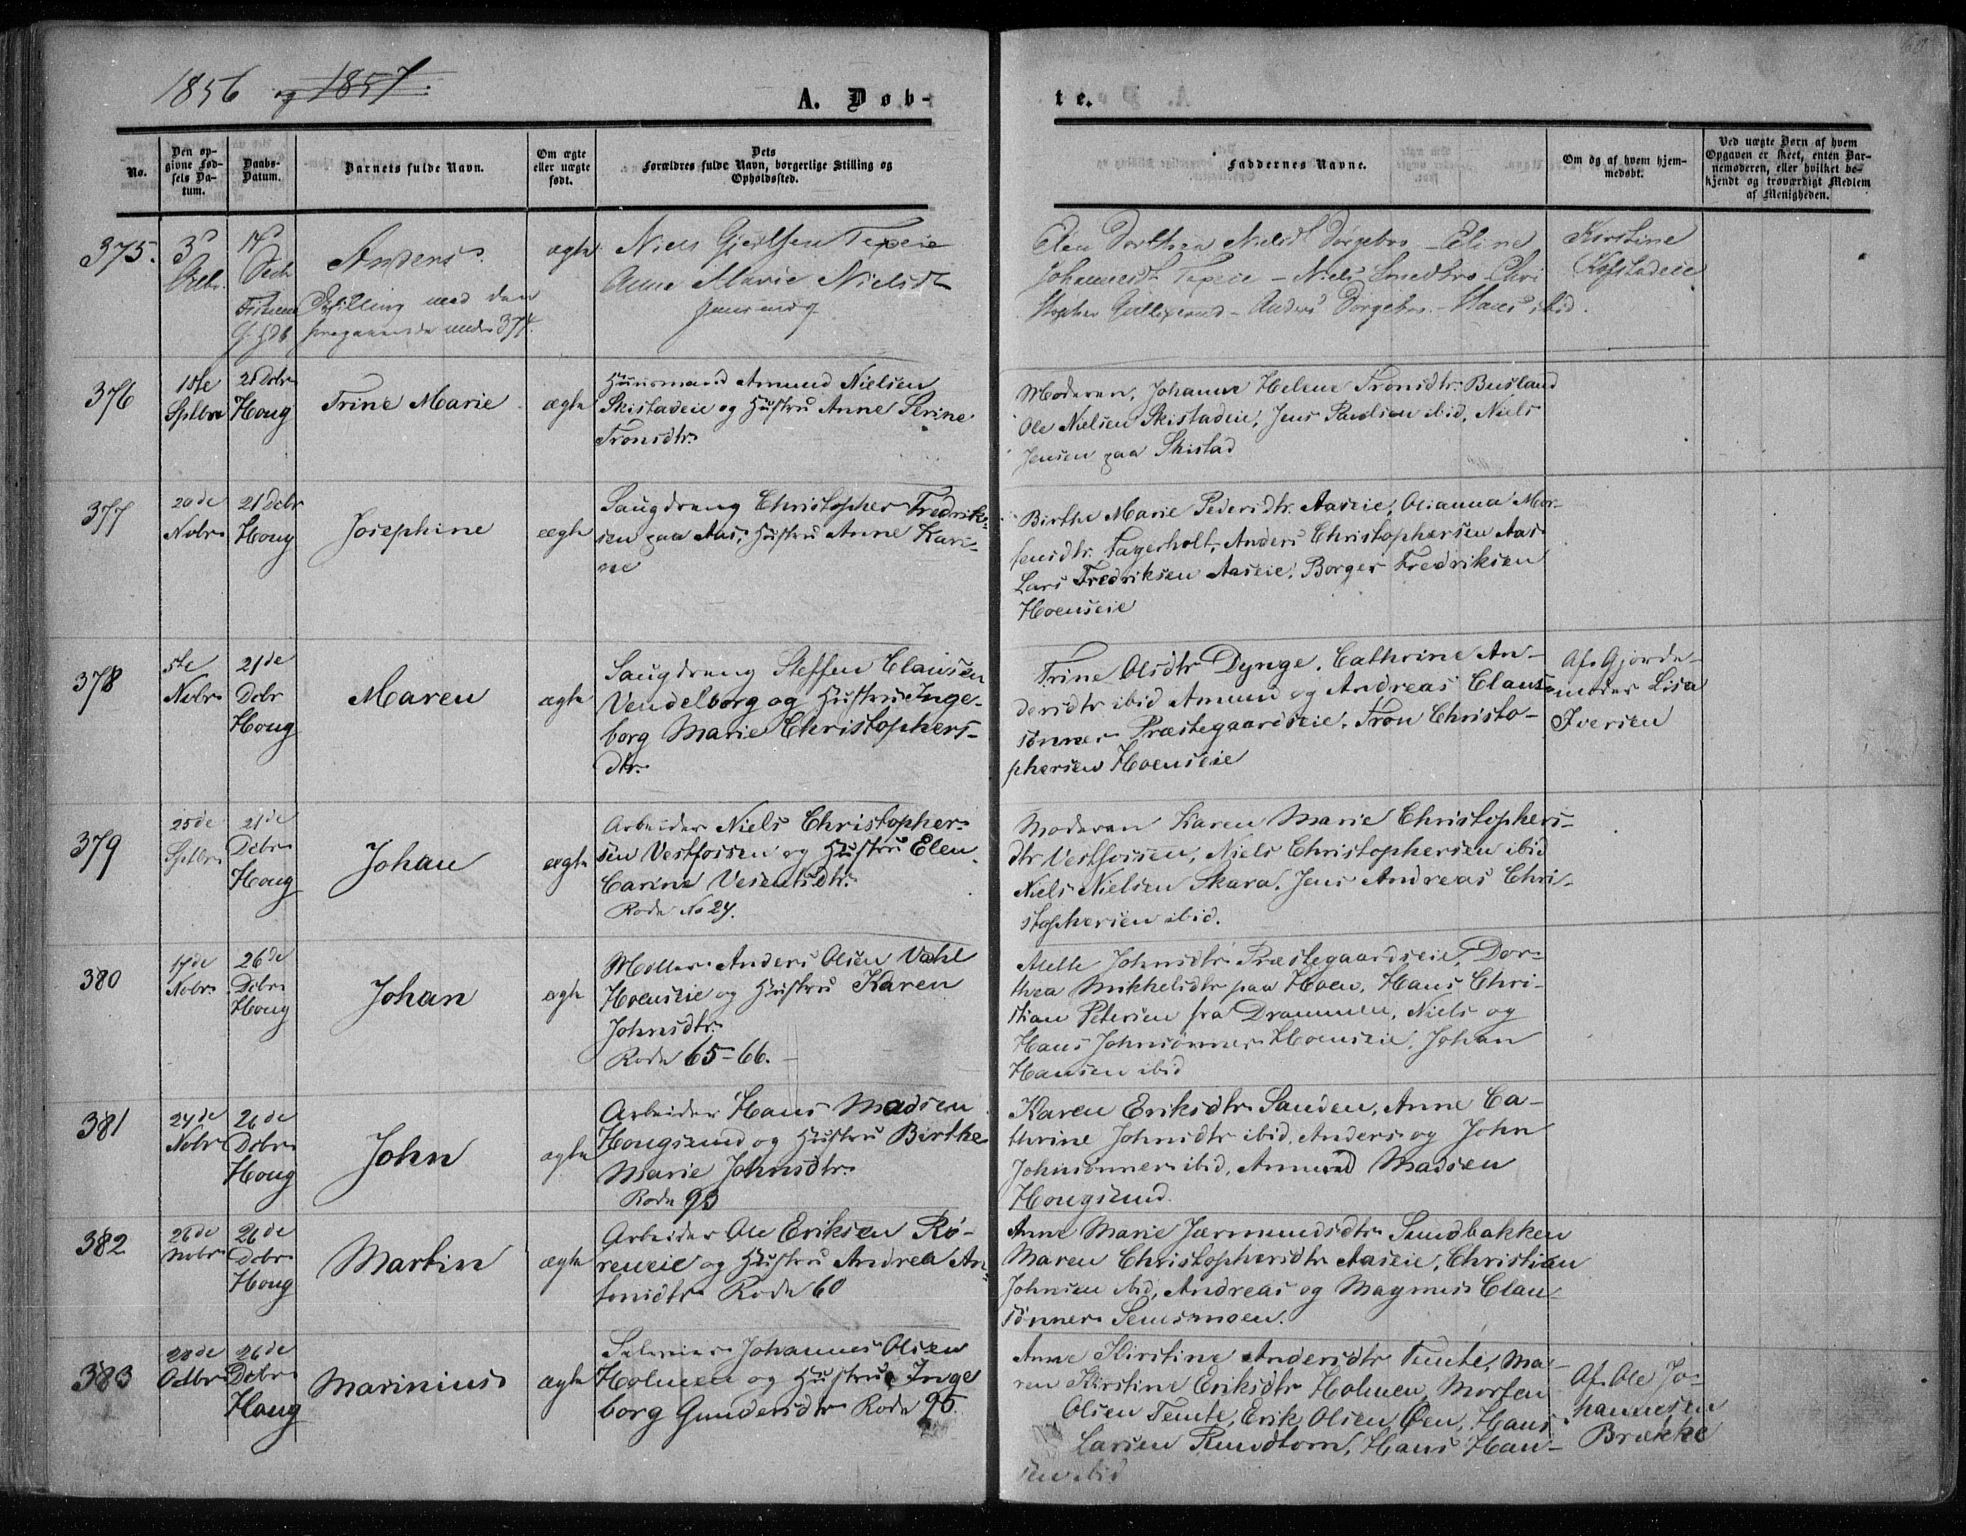 1856 og 1857.
A. Døb-
te.
No.
Den op-
givne Fød-
sels Da-
tum.
Daabs-
Datum.
Barnets fulde Navn.
Om ægte
eller uægte
født.
Dets
Forældres fulde Navn, borgerlige Stilling og
Opholdssted.
Faddernes Navne.
Om og af hvem hjem-
medøbt.
Ved uægte Børn af hvem
Opgaven er skeet, enten Bar-
nemoderen, eller hvilket be-
kjendt og troværdigt Medlem
af Menigheden.
375.
3
14
Anders
ægte
Niels
Anne Marie Nielsdt
med den
foregaaende under 374.
Elen Dorthea Nielsdt Dorgebro - Eline
Johannesdt - Niels - Chri
stopher - Anders Dorgebro - Hans ibid.
Kirstine
Kofstadeie
376
18de
Sptbr
21 Debr
Houg
Trine Marie
ægte
Huusmand Amund Nielsen
Skistadeie og Hustru Anne Serine
Tronsdtr.
Moderen, Johanne Helene Tronsdtr. Busland
Ole Nielsen Skistadeie, Jens Paulsen ibid, Niels
Jensen paa Skistad
377
20de
Nobr
21 Debr
Houg
Josephine
ægte
Saugdreng Christopher Fredrik-
sen paa Aas, Hustru Anne Kari-
ne
Birthe Marie Pedersdtr. Aaseie, Olianna Mor-
tensdtr. Fagerholt, Anders Christophersen Aas
Lars Fredriksen Aaseie, Borger Fredriksen
Hoenseie
378
5te
Nobr
21de
Debr
Houg
Maren
ægte
Saugdreng Steffen Clausen
Vendelborg og Hustru Inge-
borg Marie Christophers-
dtr.
Trine Olsdtr Dynge, Cathrine An-
dersdtr ibid Amund og Andreas Claus-
sønner Præstegaardseie, Tron Christo-
phersen Hoenseie
Af Gjorde-
moder Lisa
Iversen
379
25de
Sptbr
21de
Debr
Houg
Johan
ægte
Arbeider Niels Christopher-
sen Vestfossen og Hustru Elen
Carine Vesentsdtr.
Rode No 24.
Moderen Karen Marie Christophers-
dtr Vestfossen, Niels Christophersen ibid
Niels Nielsen Skara, Jens Andreas Chri-
stophersen ibid.
380
17de
Nobr
26de
Debr
Houg
Johan
ægte
Møller Anders Olsen Vahl
Hoenseie og Hustru Karen
Johnsdtr.
Rode 65-66.
Mette Johnsdtr Præstegaardseie, Dor-
thea Mikkelsdtr paa Hoen, Hans Chri-
stian Petersen fra Drammen, Niels og
Hans Johnsønner Hoenseie, Johan
Hansen ibid
381
24de
Nobr
26de
Debr
Houg
John
ægte
Arbeider Hans Madsen
Hougsund og Hustru Birthe
Marie Johnsdtr.
Rode 93
Karen Eriksdtr Sanden, Anne Ca-
thrine Johnsdtr ibid, Anders og John
Johnsønner ibid, Amund Madsen
Hougsund.
382
26de
Nobr
26de
Debr
Houg
Martin
ægte
Arbeider Ole Eriksen Rø-
reneie og Hustru Andrea An-
tonsdtr Rode 60
Anne Marie Jørmundsdtr Sundbakken
Maren Christophersdtr Aaseie, Christian
Johnsen ibid, Andreas og Magnus Clau-
sønner Semsmoen.
383
28de
Octbr
26de
Debr
Houg
Marinius
ægte
Selveier Johannes Olsen
Holmen og Hustru Inge
borg Gundersdtr Rode 95.
Anne Kirstine Andersdtr Temte, Ma-
ren Kirstine Eriksdtr Holmen, Morten
Olsen Temte, Erik Olsen Øen, Hans
Larsen Rundtom, Hans Han-
sen ibid
Af Ole Jo-
hannesen
Brække